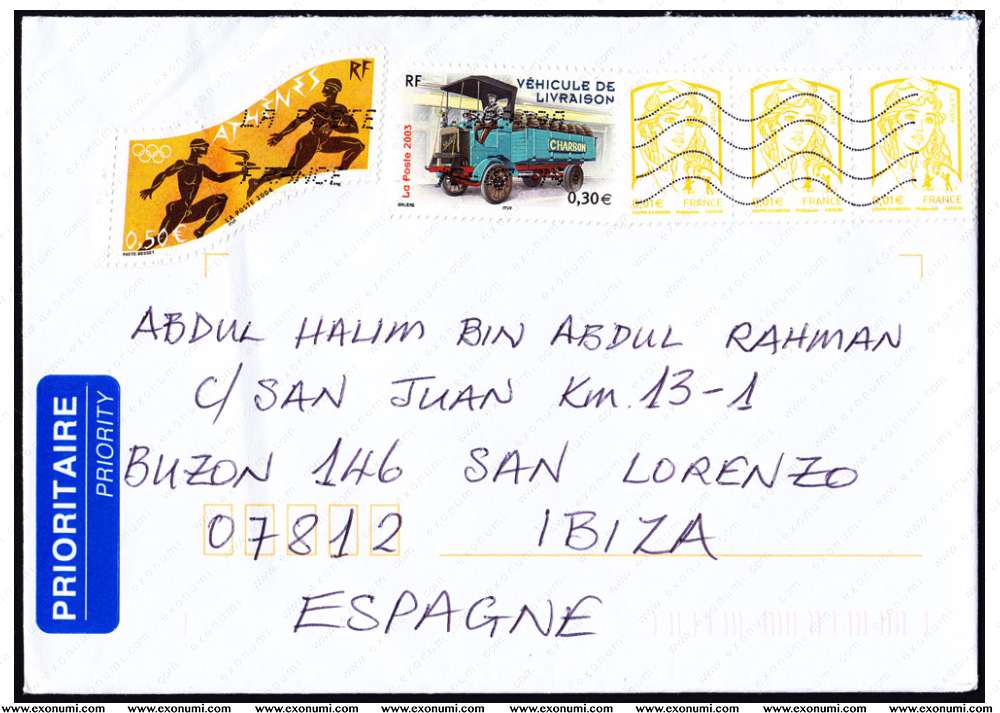 RF
ATHÈNES
0,50 €
LA POSTE 2004
LA POSTE
FRANCE
RF
VÉHICULE DE
LIVRAISON
La Poste 2003
CHARSON
0,30 €
0,01 € FRANCE
0,01 € FRANCE
0,01 € FRANCE
ABDUL HALIM BIN ABDUL RAHMAN
C/ SAN JUAN Km. 13-1
BUZON 146 SAN LORENZO
07812 IBIZA
ESPAGNE
PRIORITAIRE
PRIORITY
www.exonumi.com www.exonumi.com www.exonumi.com www.exonumi.com www.exonumi.com www.exonumi.com www.exonumi.com www.exonumi.com